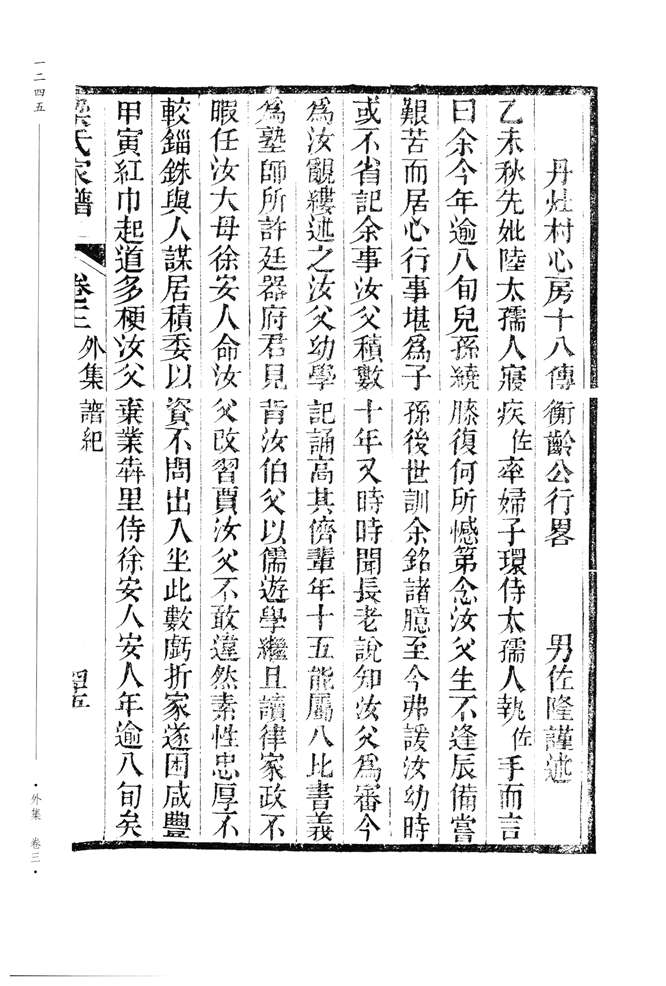 丹灶村心房十八傳衡齡公行畧　男佐隆謹述
乙未秋先妣陸太孺人寢疾佐率婦子環侍太孺人執佐手而言
曰余今年逾八旬兒孫繞膝復何所憾第念汝父生不逢辰備嘗
艱苦而居心行事堪爲子孫後世訓余銘諸臆至今弗諼汝幼時
或不省記余事汝父積數十年又時時聞長老說知汝父爲審今
爲汝覼縷述之汝父幼學記誦高其儕輩年十五能屬八比書義
爲塾師所許廷器府君見背汝伯父以儒遊學繼且讀律家政不
暇任汝大母徐安人命汝父改習賈汝父不敢違然素性忠厚不
較錙銖與人謀居積委以資不問出入坐此數虧折家遂困咸豐
甲寅紅巾起道多梗汝父棄業犇里侍徐安人安人年逾八旬矣
氏家譜　卷三　外集　譜紀　四五
一二四五
·外集　卷三·